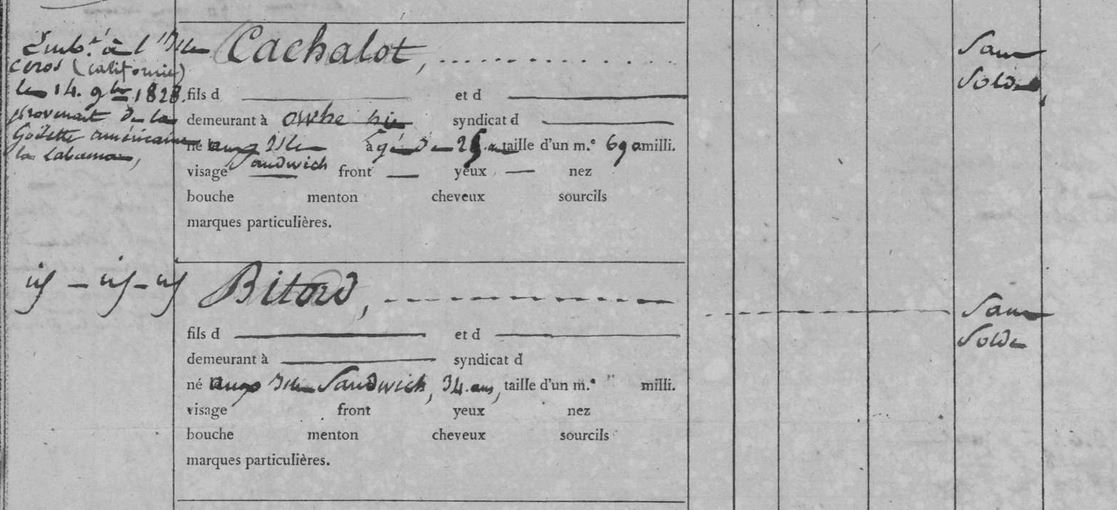 Emb.é à l'Isle
Ceros (Californie)
le 14. 9bre 1828,
provenait de la
Goëlette américaine
la Cabama,
Cachalot,
Sans
Solde,
fils d et d
demeurant à owhe hie syndicat d
né aux Isles âgé de 25. a. taille d'un m.e 690 milli.
Sandwich
visage front yeux nez
bouche menton cheveux sourcils
marques particulières.
id - id - id Bitord,
Sans
Solde
fils d et d
demeurant à syndicat d
né aux Isles Sandwich, 34. ans, taille d'un m.e " milli.
visage front yeux nez
bouche menton cheveux sourcils
marques particulières.